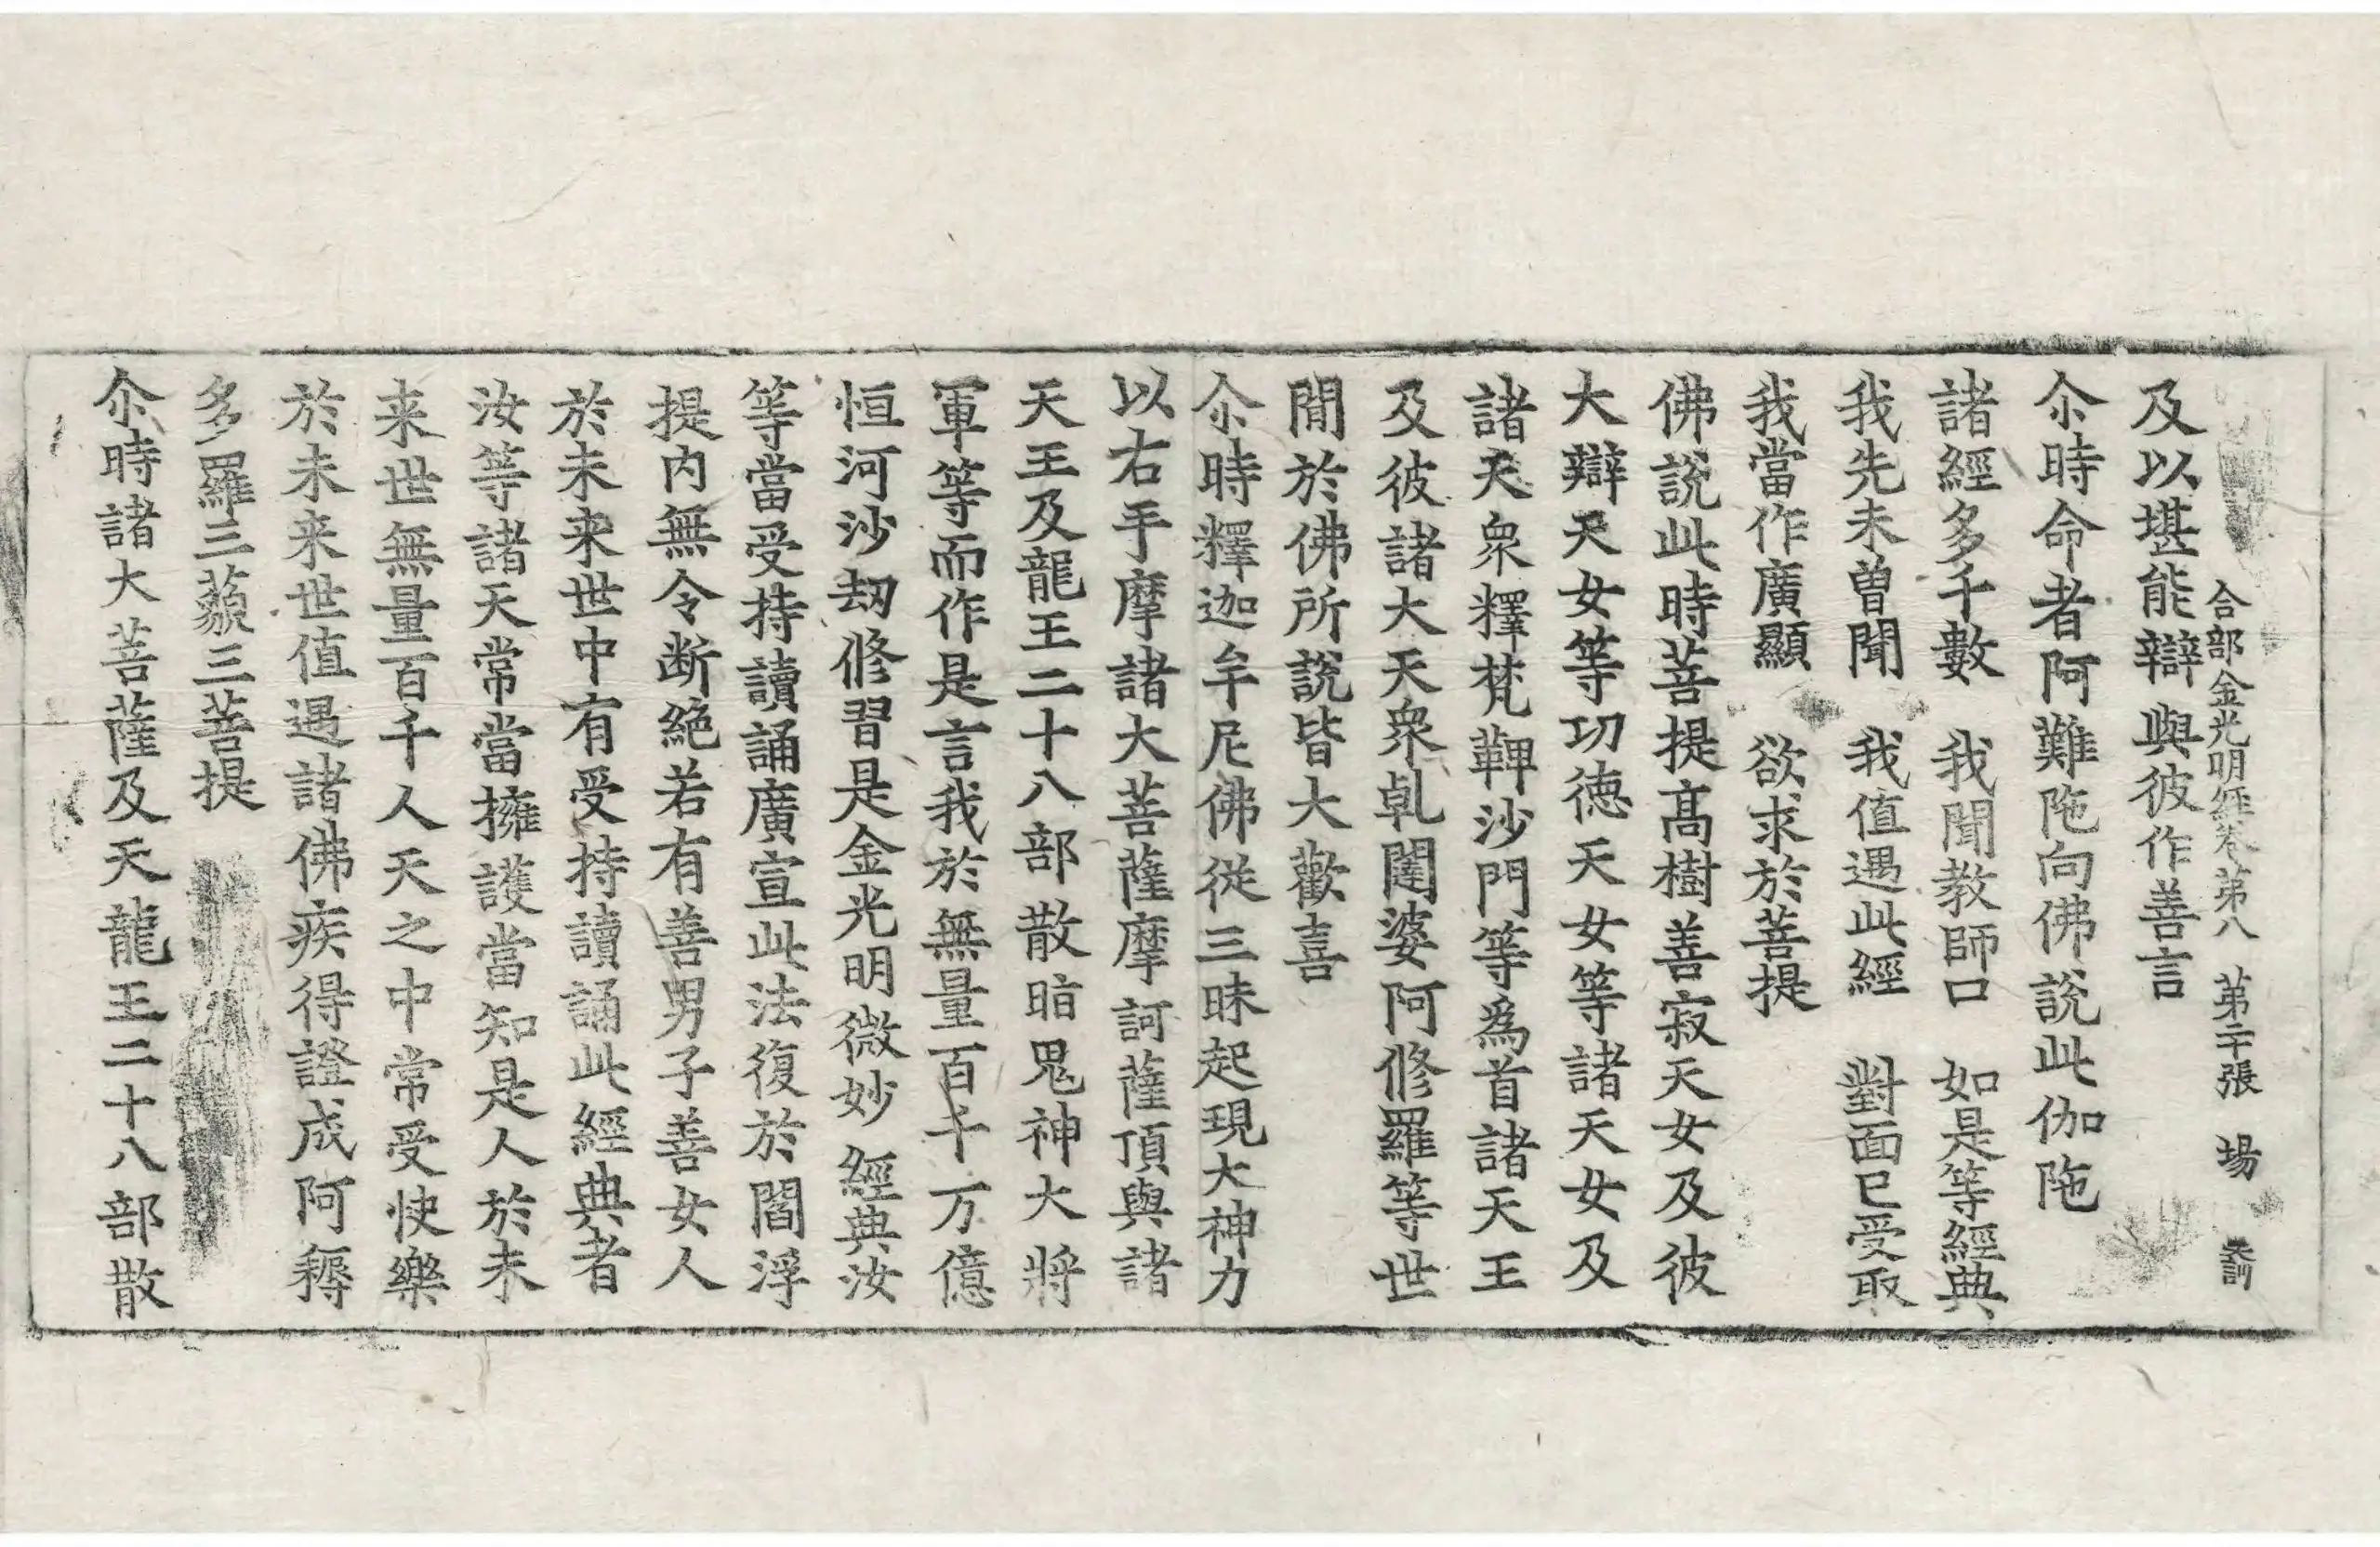 合部金光明經卷第八　第二十張　場
及以堪能辯與彼作善言
尒時命者阿難陁向佛說此伽陁
諸經多千數　我聞教師口　如是等經典
我先未曾聞　我值遇此經　對面已受取
我當作廣顯　欲求於菩提
佛說此時菩提髙樹善寂天女及彼
大辯天女等功徳天女等諸天女及
諸天衆釋梵鞞沙門等爲首諸天王
及彼諸大天衆乹闥婆阿修羅等世
閒於佛所說皆大歡喜
尒時釋迦牟尼佛從三昧起現大神力
以右手摩諸大菩薩摩訶薩頂與諸
天王及龍王二十八部散暗鬼神大將
軍等而作是言我於無量百千万億
恒河沙劫修習是金光明微妙經典汝
等當受持讀誦廣宣此法復於閻浮
提内無令断絶若有善男子善女人
於未来世中有受持讀誦此經典者
汝等諸天常當擁護當知是人於未
来世無量百千人天之中常受快樂
於未来世值遇諸佛疾得證成阿耨
多羅三藐三菩提
尒時諸大菩薩及天龍王二十八部散